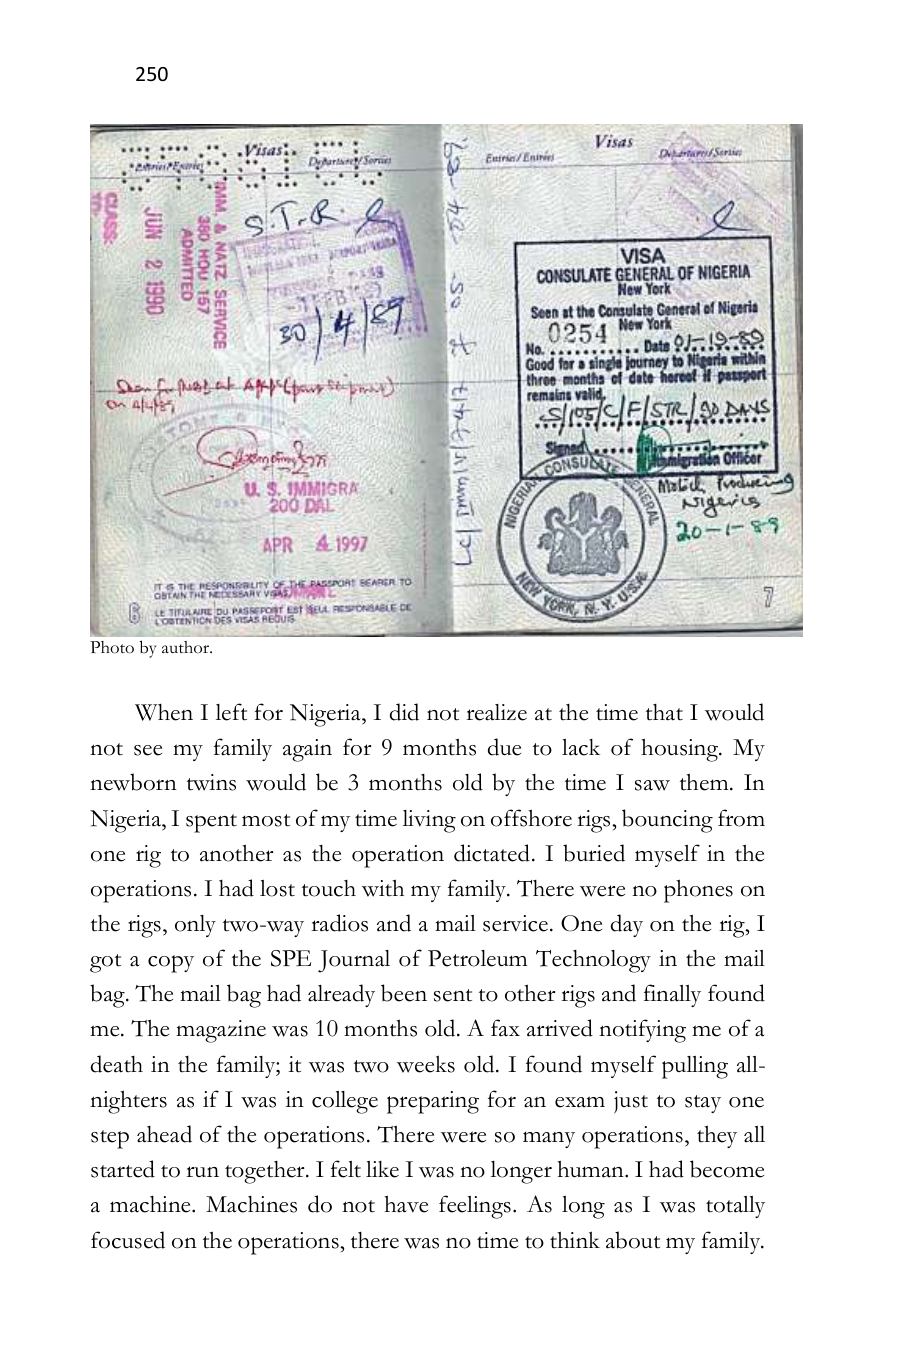 250
Visas
Entries/Entrées
Departures/Sorties
IMM. & NATZ SERVICE
380 HOU 157
ADMITTED
JUN 2 1990
CLASS:
TO:
S.T.R.
30/4/89
U. S. IMMIGRA
200 DAL
APR 4 1997
IT IS THE RESPONSIBILITY OF THE PASSPORT BEARER TO
OBTAIN THE NECESSARY VISAS
LE TITULAIRE DU PASSEPORT EST SEUL RESPONSABLE DE
L'OBTENTION DES VISAS REQUIS
6
Visas
Entries/Entrées
Departures/Sorties
VISA
CONSULATE GENERAL OF NIGERIA
New York
Seen at the Consulate General of Nigeria
New York
No. 0254 Date 01-19-89
Good for a single journey to Nigeria within
three months of date hereof if passport
remains valid.
S/105/C/F/STR/90 DAYS
Signed
Immigration Officer
Mobil Producing
Nigeria
20-1-89
NIGERIAN CONSULATE GENERAL
NEW YORK, N. Y. U.S.A.
7
Photo by author.
When I left for Nigeria, I did not realize at the time that I would
not see my family again for 9 months due to lack of housing. My
newborn twins would be 3 months old by the time I saw them. In
Nigeria, I spent most of my time living on offshore rigs, bouncing from
one rig to another as the operation dictated. I buried myself in the
operations. I had lost touch with my family. There were no phones on
the rigs, only two-way radios and a mail service. One day on the rig, I
got a copy of the SPE Journal of Petroleum Technology in the mail
bag. The mail bag had already been sent to other rigs and finally found
me. The magazine was 10 months old. A fax arrived notifying me of a
death in the family; it was two weeks old. I found myself pulling all-
nighters as if I was in college preparing for an exam just to stay one
step ahead of the operations. There were so many operations, they all
started to run together. I felt like I was no longer human. I had become
a machine. Machines do not have feelings. As long as I was totally
focused on the operations, there was no time to think about my family.